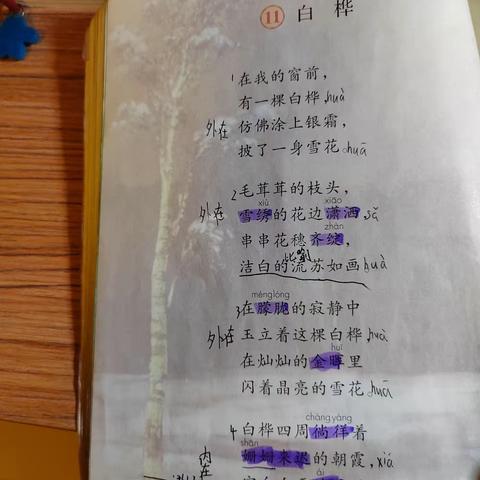 11 白桦
1 在我的窗前，
有一棵白桦，huà
外在 仿佛涂上银霜，
披了一身雪花。huā
2 毛茸茸的枝头，
xiù xiāo
外在 雪绣的花边潇洒，sǎ
zhàn
串串花穗齐绽，
比喻
洁白的流苏如画。huà
méng lóng
3 在朦胧的寂静中
外在 玉立着这棵白桦，huà
huī
在灿灿的金晖里
闪着晶亮的雪花。huā
cháng yáng
4 白桦四周徜徉着
shān
内在 姗姗来迟的朝霞，xiá
ǎi